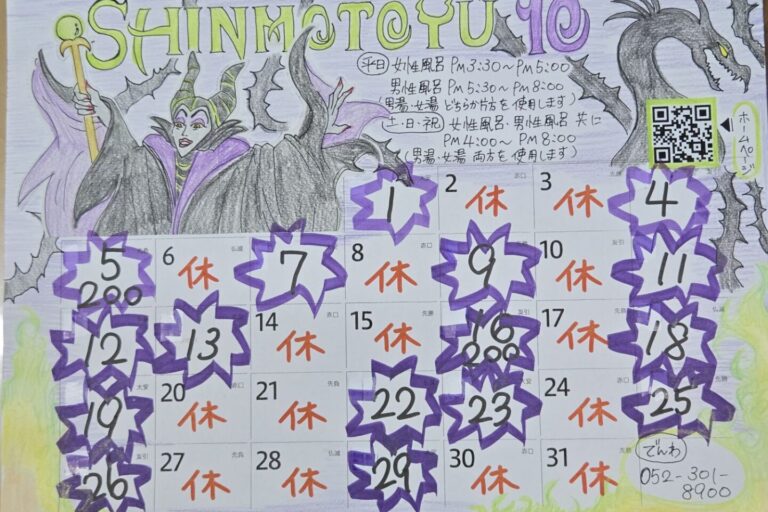 SHINMOTOYU 10
平日 女性風呂 PM3:30〜PM5:00
男性風呂 PM5:30〜PM8:00
(男湯・女湯 どちらか片方を使用します)
土・日・祝 女性風呂・男性風呂 共に
PM4:00〜PM8:00
(男湯・女湯 両方を使用します)
ホームページ
1 2 赤口 休 3 先勝 休 4
5 200 6 仏滅 休 7 8 赤口 休 9 10 友引 休 11
12 13 14 赤口 休 15 先勝 休 16 200 17 先負 休 18 仏滅
19 大安 20 赤口 休 21 先負 休 22 23 大安 24 赤口 休 25 先勝
26 友引 27 先負 休 28 仏滅 休 29 30 休 31 先勝 休
でんわ
052-301-
8900